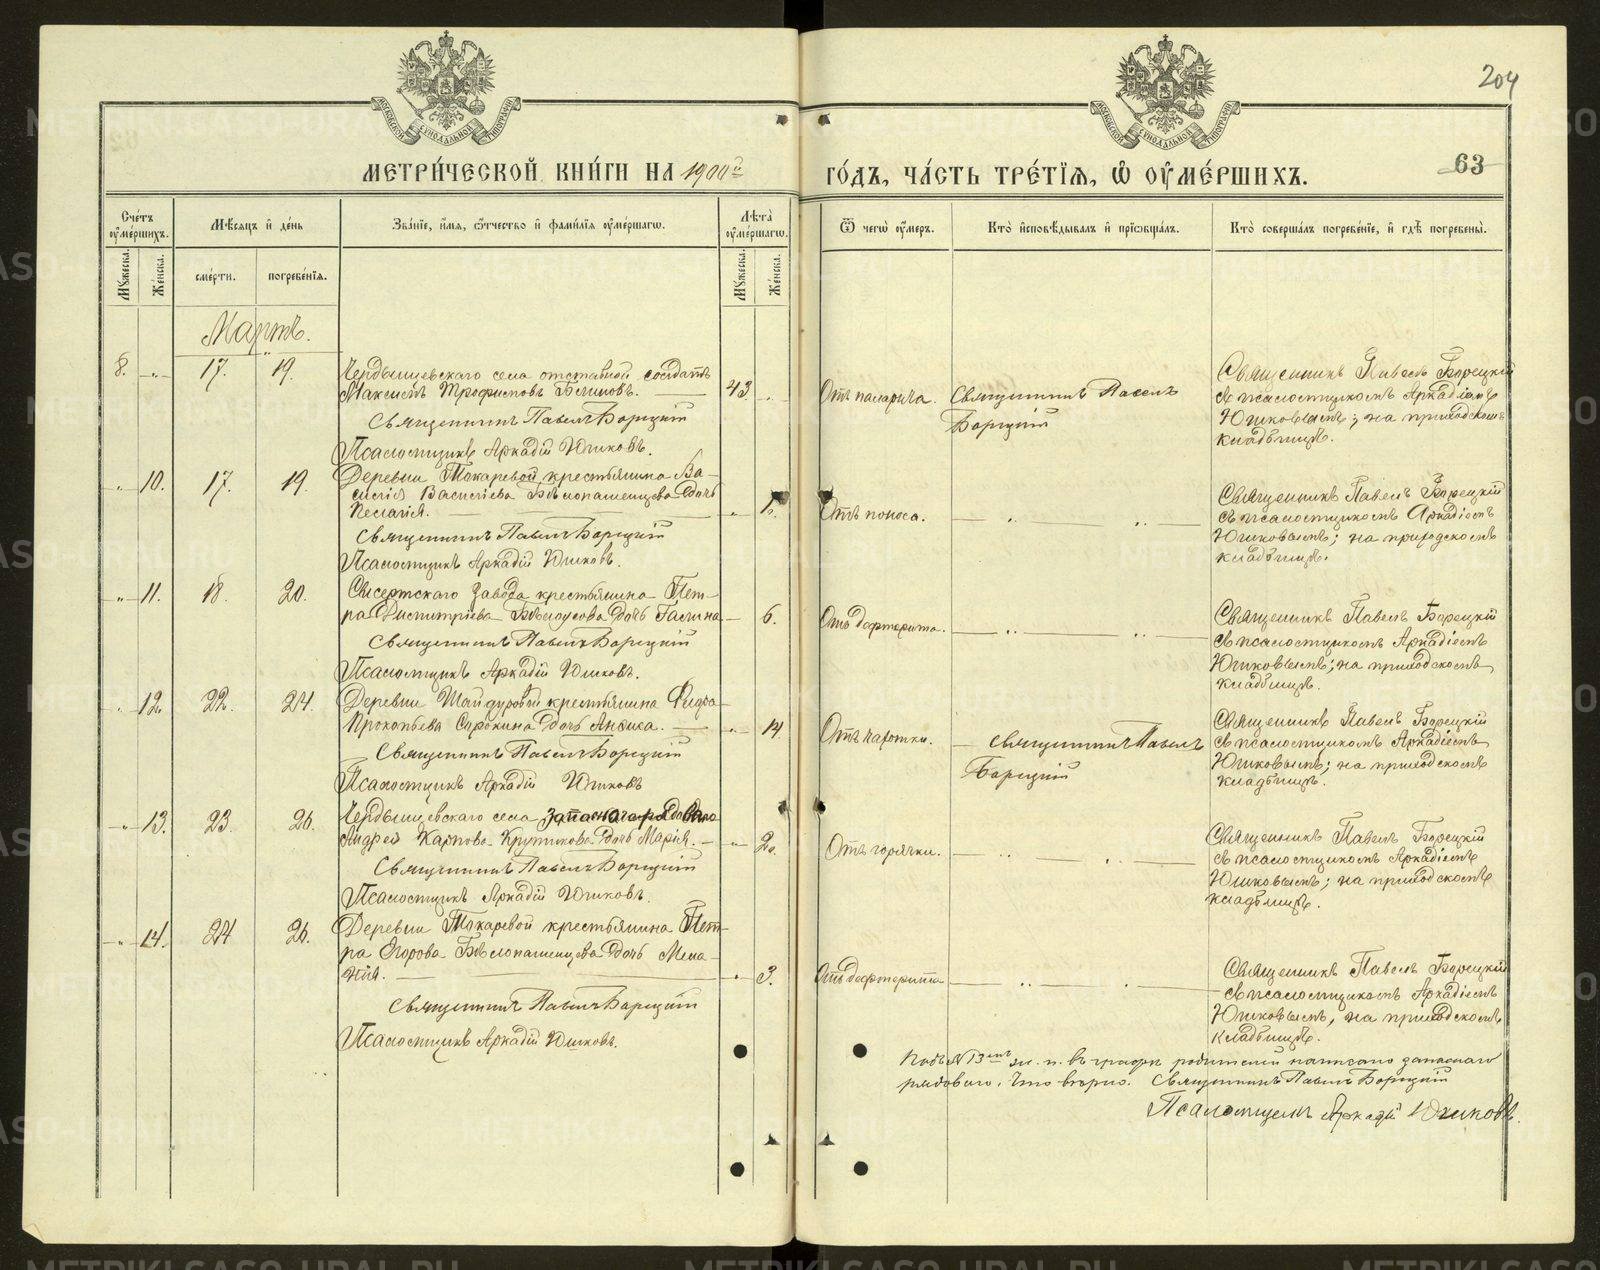 204
МОСКОВСКОЙ СѴНОДАЛЬНОЙ ТИПОГРАФІИ
МОСКОВСКОЙ СѴНОДАЛЬНОЙ ТИПОГРАФІИ
МЕТРИ́ЧЕСКОЙ КНИ́ГИ НА 1900й ГО́ДЪ, ЧА́СТЬ ТРЕ́ТІѦ, Ѡ ОУМЕ́РШИХЪ.
63
Сче́тъ оумершихъ.
Мѣсѧцъ и де́нь
Зва́нїе, и́мѧ, ѻ́тчество и фами́лїѧ оуме́ршагѡ.
Лѣта̀ оуме́ршагѡ.
Ѿ чегѡ̀ оу́меръ.
Кто̀ и҆сповѣ́дывалъ и҆ прїѡбща́лъ.
Кто̀ соверша́лъ погребе́нїе, и҆ гдѣ̀ погребены̀.
Му́жеска.
Же́нска.
сме́рти.
погребе́нїѧ.
Му́жеска.
Же́нска.
Мартъ.
8. -„- 17. 19. Чердынцевскаго села отставной солдатъ
Максимъ Трофимовъ Блиновъ. 43 „
Священникъ Павелъ Борецкій
Псаломщикъ Аркадій Юшковъ.
Отъ паралича.
Священникъ Павелъ
Борецкій
Священникъ Павелъ Борецкій
съ псаломщикомъ Аркадіемъ
Юшковымъ; на приходскомъ
кладбищѣ.
-„- 10. 17. 19. Деревни Токаревой крестьянина Ва-
силія Васильева Бѣлопашенцева дочь
Пелагія. -„- 1.
Священникъ Павелъ Борецкій
Псаломщикъ Аркадій Юшковъ.
Отъ поноса. „ „
Священникъ Павелъ Борецкій
съ псаломщикомъ Аркадіемъ
Юшковымъ; на приходскомъ
кладбищѣ.
-„- 11. 18. 20. Сысертскаго завода крестьянина Пет-
ра Димитріева Бѣлоусова дочь Галина 6.
Священникъ Павелъ Борецкій
Псаломщикъ Аркадій Юшковъ.
Отъ дифтерита. „ „
Священникъ Павелъ Борецкій
съ псаломщикомъ Аркадіемъ
Юшковымъ; на приходскомъ
кладбищѣ.
-„- 12. 22. 24. Деревни Шайдуровой крестьянина Федора
Прокопьева Сурокина дочь Анфиса. -„- 14
Священникъ Павелъ Борецкій
Псаломщикъ Аркадій Юшковъ
Отъ чахотки.
Священникъ Павелъ
Борецкій
Священникъ Павелъ Борецкій
съ псаломщикомъ Аркадіемъ
Юшковымъ; на приходскомъ
кладбищѣ.
-„- 13. 23. 26. Чердынцевскаго села запаснаго рядоваго
Андрея Карпова Крутикова дочь Марія. -„- 2.
Священникъ Павелъ Борецкій
Псаломщикъ Аркадій Юшковъ.
Отъ горячки. „ „
Священникъ Павелъ Борецкій
съ псаломщикомъ Аркадіемъ
Юшковымъ; на приходскомъ
кладбищѣ.
-„- 14. 24 26. Деревни Токаревой крестьянина Пет-
ра Егорова Бѣлопашенцева дочь Мела-
нія. -„- 3.
Священникъ Павелъ Борецкій
Псаломщикъ Аркадій Юшковъ.
Отъ дифтерита „ „
Священникъ Павелъ Борецкій
съ псаломщикомъ Аркадіемъ
Юшковымъ, на приходскомъ
кладбищѣ.
Подъ №13мъ ж. п. въ графѣ родителей написано запаснаго
рядоваго. Что вѣрно. Священникъ Павелъ Борецкій
Псаломщикъ Аркадій Юшковъ.